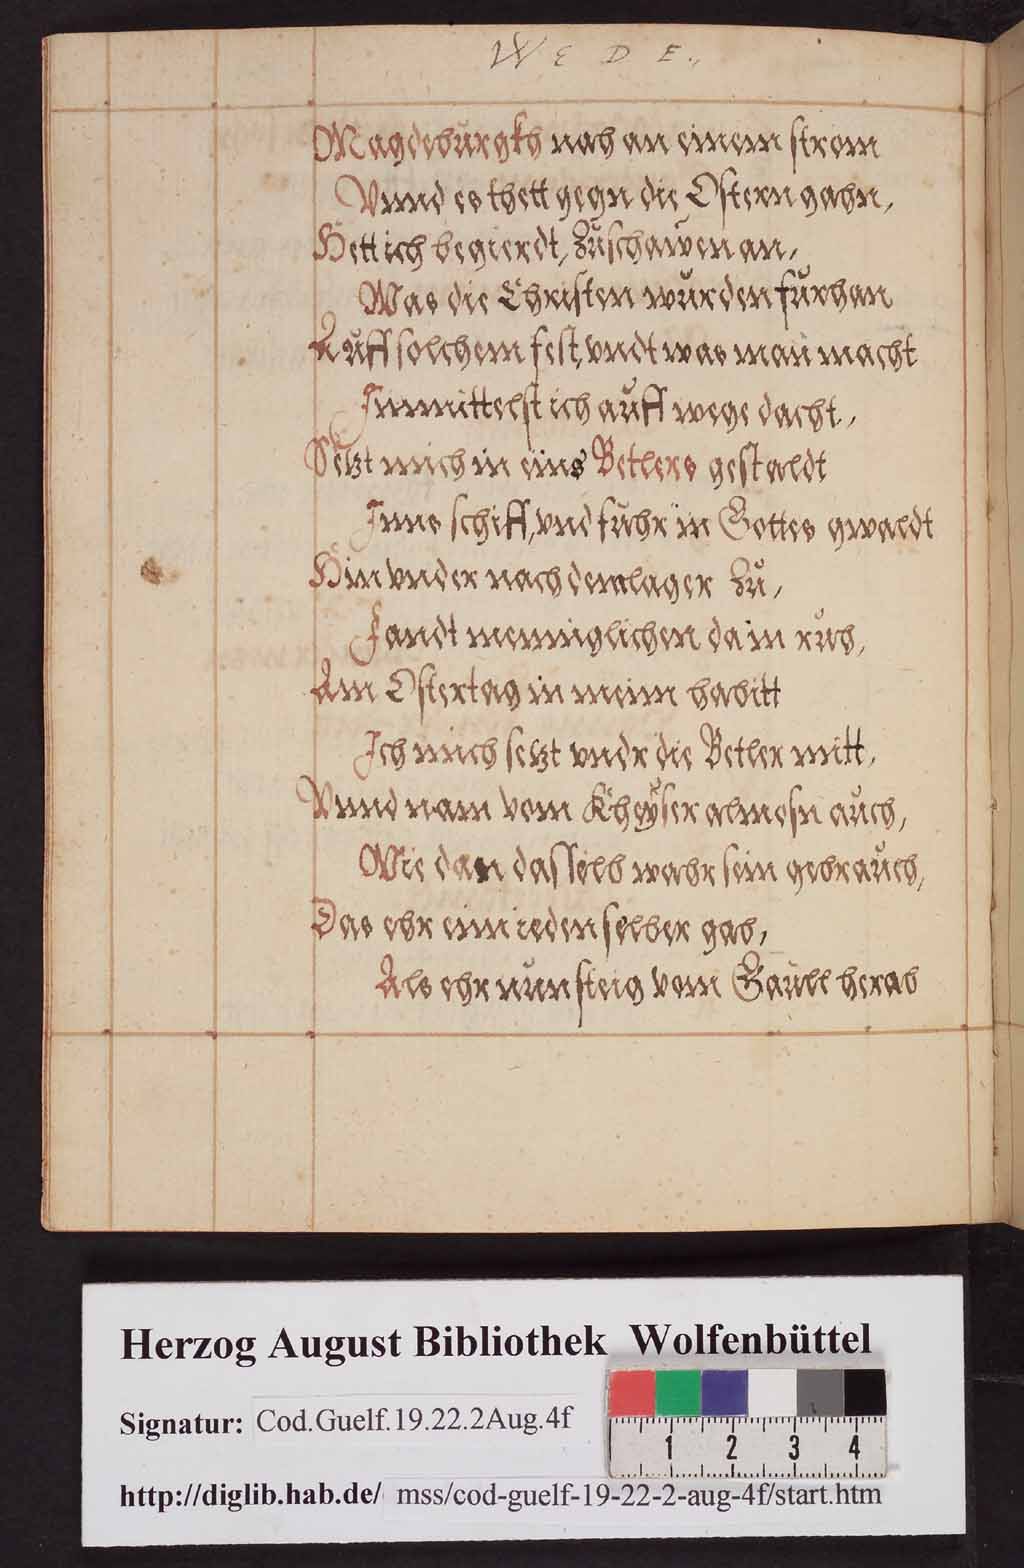 W E D E.,
Magdebůrgkh nah an einem strom
Vnnd es thett gegn die Ostern gahn,
Hett ich begierdt, Zůschawen an,
Was die Christen wůrden fůrhan
Aůff solchem fest, vndt was man macht
Inmittelst ich aůff wege dacht,
Setzt mich in eins Betlers gestaldt
Inns schiff, vnd fuhr in Gottes gwaldt
Hin vnder nach dem lager Zů,
Fandt menniglichen da in růh,
Am Ostertag in meim habitt
Ich mich setzt vndr die Betler mitt,
Vnnd nam vom Kheÿser almosn aůch,
Wie dan dasselb wahr sein gebraůch,
Das ehr eim ieden selber gab,
Als ehr nůn steig vom Gaůll herab
Herzog August Bibliothek Wolfenbüttel
Signatur: Cod.Guelf.19.22.2Aug.4f
1 2 3 4
http://diglib.hab.de/ mss/cod-guelf-19-22-2-aug-4f/start.htm